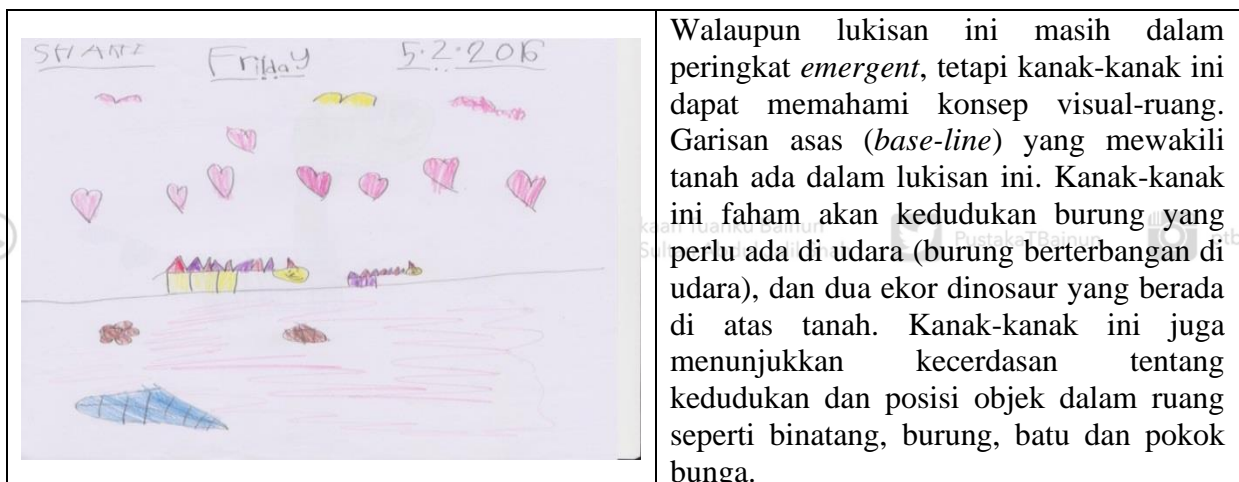 SHANI Friday 5.2.2016
Walaupun lukisan ini masih dalam
peringkat emergent, tetapi kanak-kanak ini
dapat memahami konsep visual-ruang.
Garisan asas (base-line) yang mewakili
tanah ada dalam lukisan ini. Kanak-kanak
ini faham akan kedudukan burung yang
perlu ada di udara (burung berterbangan di
udara), dan dua ekor dinosaur yang berada
di atas tanah. Kanak-kanak ini juga
menunjukkan kecerdasan tentang
kedudukan dan posisi objek dalam ruang
seperti binatang, burung, batu dan pokok
bunga.
PustakaTBainun
ptb